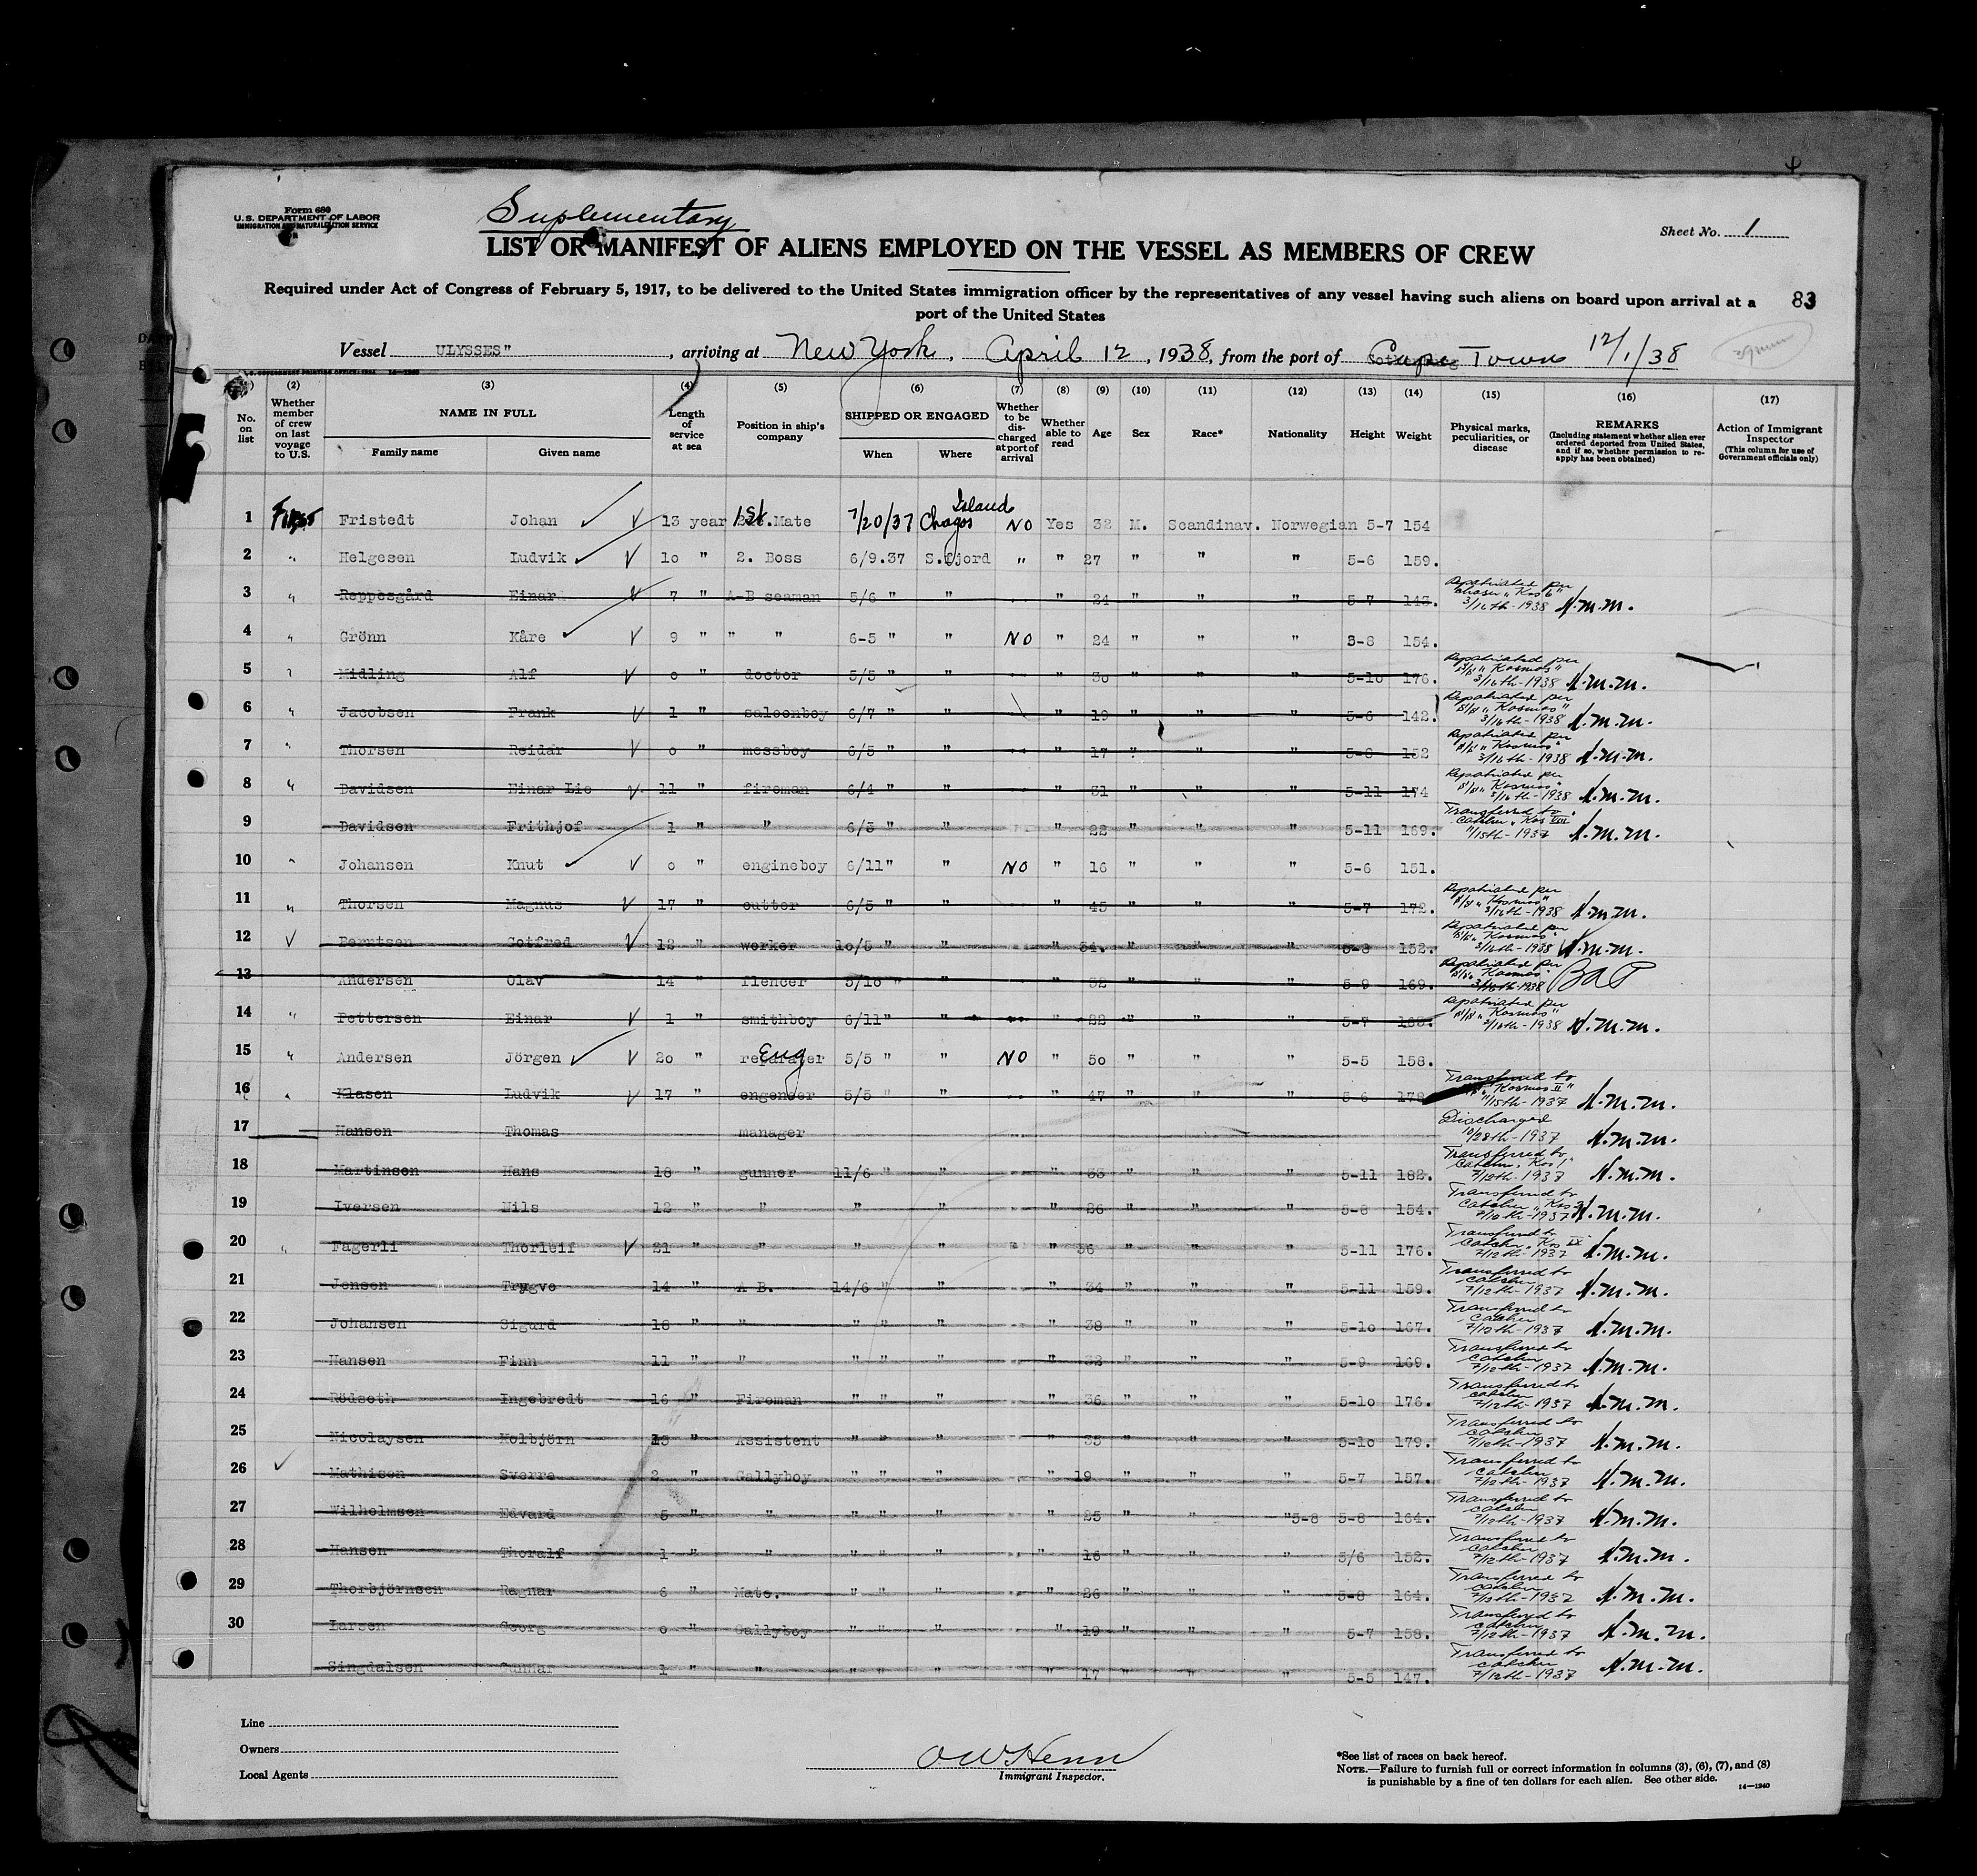 Form 680
U.S. DEPARTMENT OF LABOR
IMMIGRATION AND NATURALIZATION SERVICE
Suplementary
Sheet No. 1
LIST OR MANIFEST OF ALIENS EMPLOYED ON THE VESSEL AS MEMBERS OF CREW
Required under Act of Congress of February 5, 1917, to be delivered to the United States immigration officer by the representatives of any vessel having such aliens on board upon arrival at a
port of the United States
83
Vessel ULYSSES" , arriving at New York, April 12, 1938, from the port of Cape Town 12/1/38
(2) (3) (4) (5) (6) (7) (8) (9) (10) (11) (12) (13) (14) (15) (16) (17)
No. on list
Whether member of crew on last voyage to U.S.
NAME IN FULL
Family name Given name
Length of service at sea
Position in ship's company
SHIPPED OR ENGAGED
When Where
Whether to be discharged at port of arrival
Whether able to read
Age Sex Race* Nationality Height Weight
Physical marks, peculiarities, or disease
REMARKS
(Including statement whether alien ever ordered deported from United States, and if so, whether permission to reapply has been obtained)
Action of Immigrant Inspector
(This column for use of Government officials only)
1 First Fristedt Johan 13 year 1st. Mate 7/20/37 Chagos Island NO Yes 32 M. Scandinav. Norwegian 5-7 154
2 " Helgesen Ludvik 10 " 2. Boss 6/9.37 S.fjord " " 27 " " " 5-6 159.
3 " Reppesgård Einar 7 " A-B seaman 5/6 " " " 24 " " " 5-7 143. Repatriated per chaser "Kos 6" 3/16th-1938 H.M.M.
4 " Grönn Kåre 9 " " " 6-5 " " NO " 24 " " " 3-8 154.
5 " Midling Alf 0 " doctor 5/5 " " " 30 " " " 5-10 176. Repatriated per s/s "Kosmos" 3/16th-1938 H.M.M.
6 " Jacobsen Frank 1 " saloonboy 6/7 " " " 19 " " " 5-6 142. Repatriated per s/s "Kosmos" 3/16th-1938 H.M.M.
7 " Thorsen Reidar 0 " messboy 6/5 " " " 17 " " " 5-8 152 Repatriated per s/s "Kosmos" 3/16th-1938 H.M.M.
8 " Davidsen Einar Lie 11 " fireman 6/4 " " " 31 " " " 5-11 174 Repatriated per s/s "Kosmos" 3/16th-1938 H.M.M.
9 Davidsen Frithjof 1 " " 6/3 " " " 22 " " " 5-11 169. Transferred to catcher "Kos VIII" 11/15th-1937 H.M.M.
10 " Johansen Knut 0 " engineboy 6/11" " NO " 16 " " " 5-6 151.
11 " Thorsen Magnus 17 " cutter 6/5 " " " 45 " " " 5-7 172. Repatriated per s/s "Kosmos" 3/16th-1938 H.M.M.
12 Berntsen Gotfred 12 " worker 10/5 " " " 54. " " " 5-8 152. Repatriated per s/s "Kosmos" 3/16th-1938 H.M.M.
13 Andersen Olav 14 " flencer 5/10 " " " 32 " " " 5-9 169. Repatriated per s/s "Kosmos" 3/16th-1938
14 " Pettersen Einar 1 " smithboy 6/11" " " 22 " " " 5-7 Repatriated per s/s "Kosmos" 3/16th-1938 H.M.M.
15 " Andersen Jörgen 20 " Eng reparater 5/5 " " NO " 50 " " " 5-5 158.
16 " Klasen Ludvik 17 " engeneer 5/5 " " " 47 " " " 5-6 178 Transferred to "Kosmos II" 11/15th-1937 H.M.M.
17 Hansen Thomas manager Discharged 10/28th-1937 H.M.M.
18 Martinsen Hans 18 " gunner 11/6 " " " 33 " " " 5-11 182. Transferred to catcher "Kos 1" 7/12th-1937 H.M.M.
19 Iversen Nils 12 " " " " " 26 " " " 5-8 154. Transferred to catcher "Kos 2" 7/12th-1937 H.M.M.
20 " Fagerli Thorleif 21 " " " " " " 36 " " " 5-11 176. Transferred to catcher "Kos IX" 7/12th-1937 H.M.M.
21 Jensen Trygve 14 " A B. 14/6 " " " 34 " " " 5-11 159. Transferred to catcher 7/12th-1937 H.M.M.
22 Johansen Sigurd 16 " " " " " " 38 " " " 5-10 167. Transferred to catcher 7/12th-1937 H.M.M.
23 Hansen Finn 11 " " " " " " 32 " " " 5-9 169. Transferred to catcher 7/12th-1937 H.M.M.
24 Rödseth Ingebredt 16 " Fireman " " " " 36 " " " 5-10 176. Transferred to catcher 7/12th-1937 H.M.M.
25 Nicolaysen Kolbjörn 13 " Assistent " " " " 35 " " " 5-10 179. Transferred to catcher 7/12th-1937 H.M.M.
26 Mathisen Sverre 2 " Gallyboy " " " " 19 " " " 5-7 157. Transferred to catcher 7/12th-1937 H.M.M.
27 Wilhelmsen Edvard 5 " " " " " " 25 " " "5-8 5-8 164. Transferred to catcher 7/12th-1937 H.M.M.
28 Hansen Thoralf 1 " " " " " " 16 " " " 5/6 152. Transferred to catcher 7/12th-1937 H.M.M.
29 Thorbjörnsen Ragnar 6 " Mate. " " " " 26 " " " 5-8 164. Transferred to catcher 7/12th-1937 H.M.M.
30 Larsen Georg 0 " Gallyboy " " " " 19 " " " 5-7 158. Transferred to catcher 7/12th-1937 H.M.M.
Singdalsen Gunnar 1 " " " " " " 17 " " " 5-5 147. Transferred to catcher 7/12th-1937 H.M.M.
Line
Owners
Local Agents
OW Henn
Immigrant Inspector.
*See list of races on back hereof.
NOTE.—Failure to furnish full or correct information in columns (3), (6), (7), and (8)
is punishable by a fine of ten dollars for each alien. See other side.
14—1240